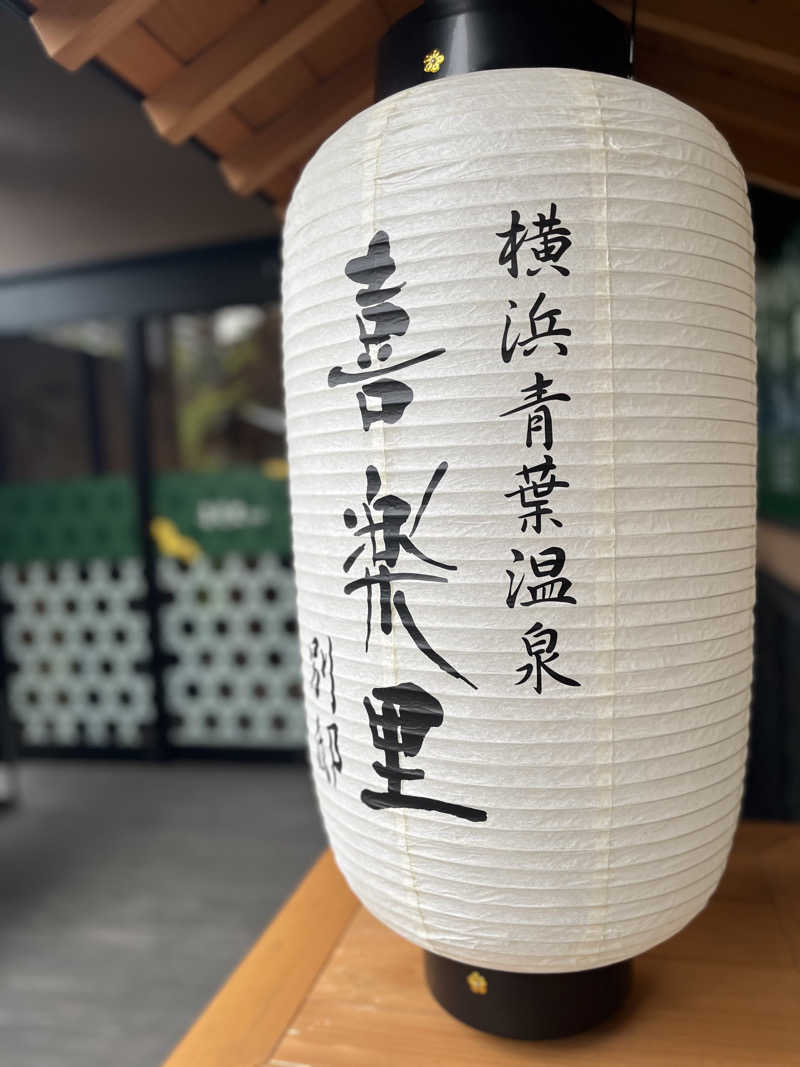 横浜青葉温泉
喜楽里
別邸